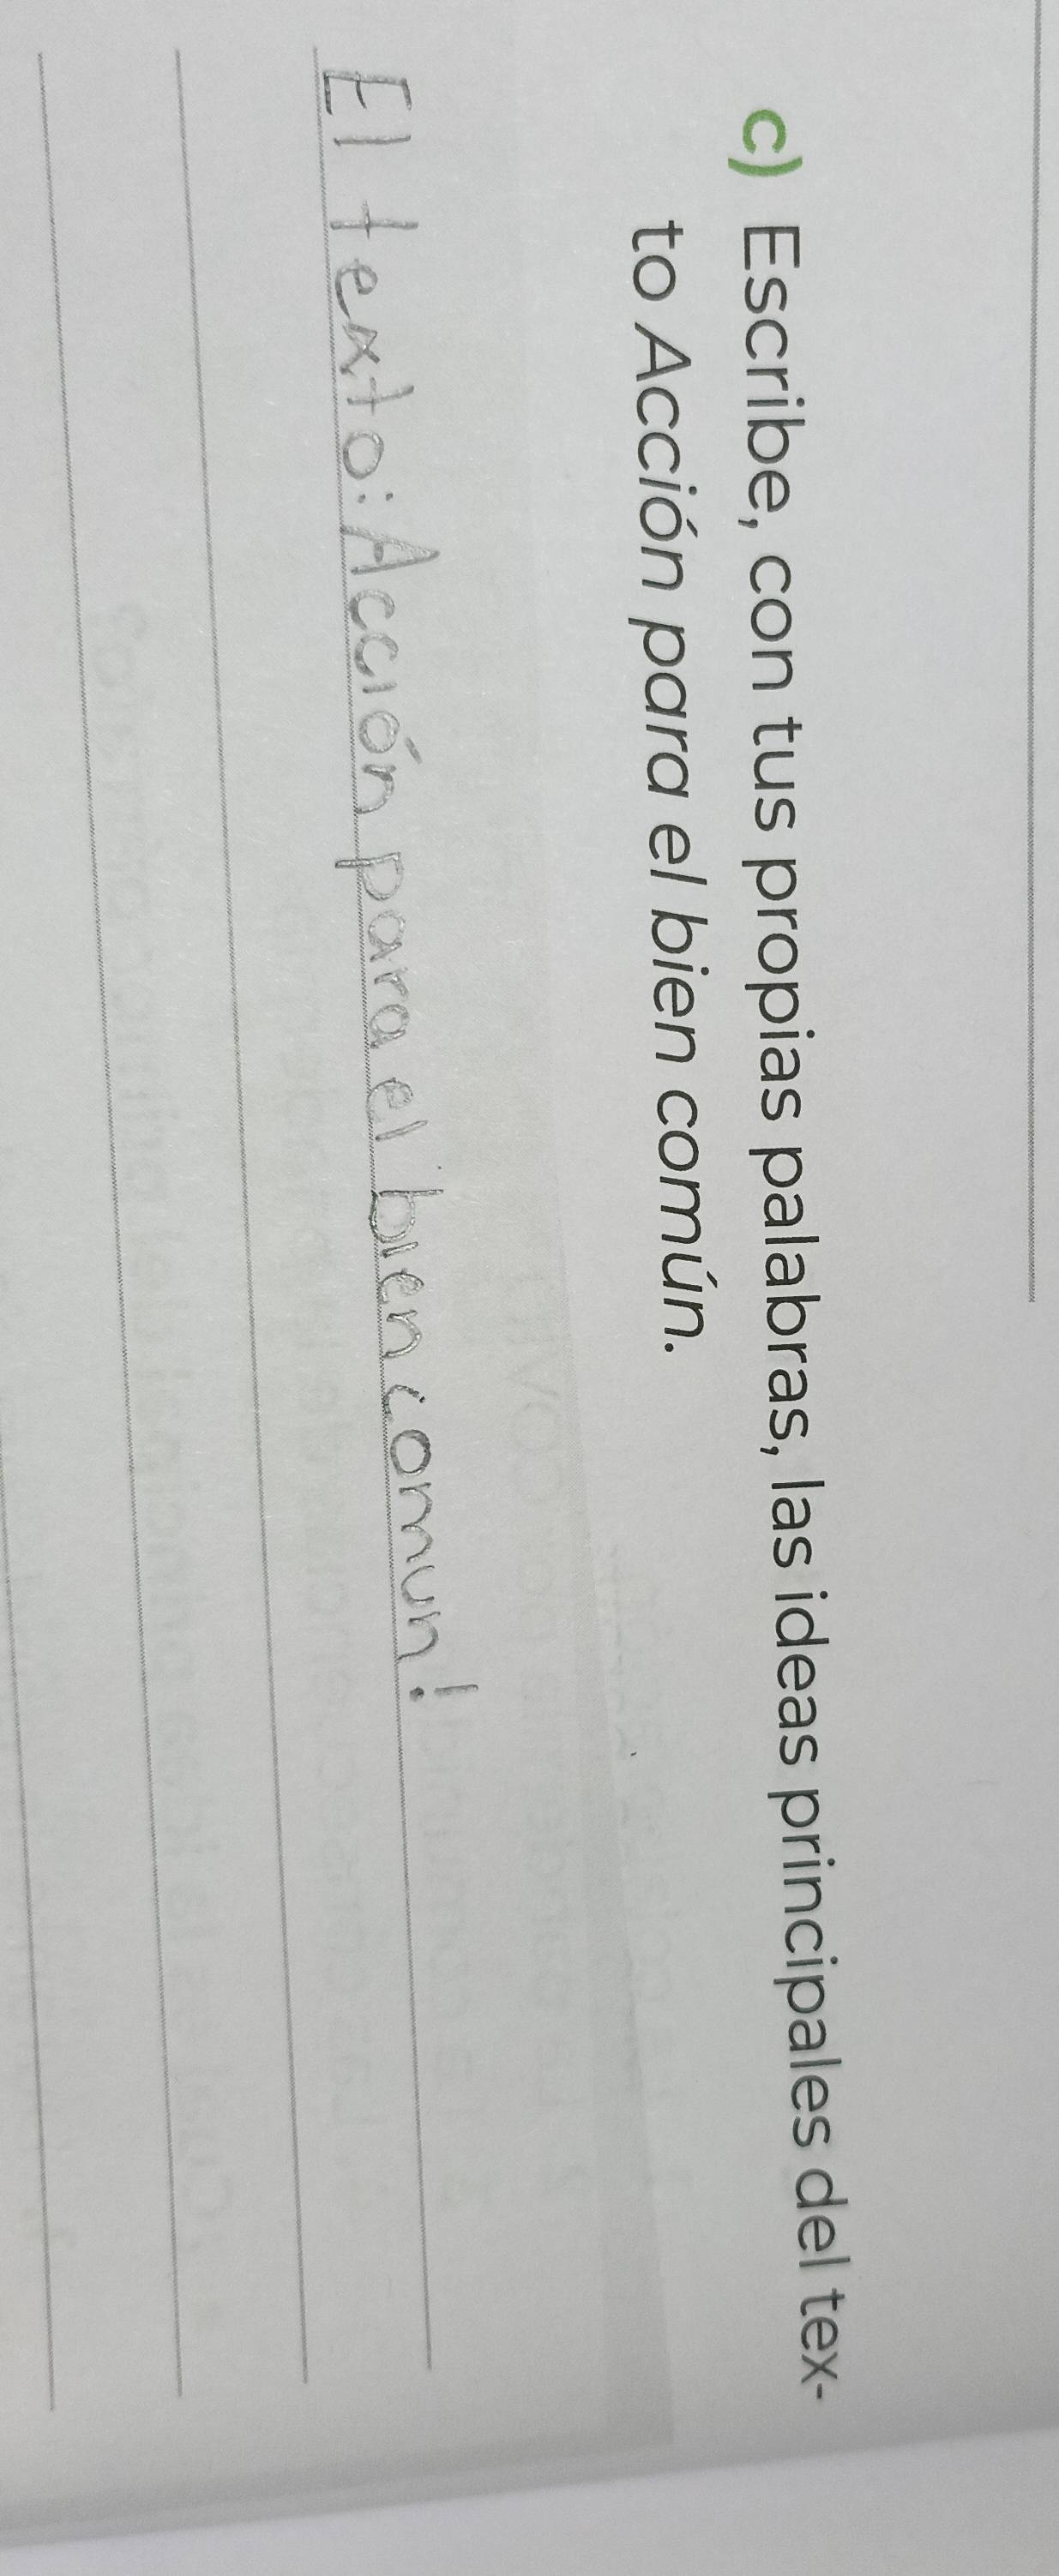 c) Escribe, con tus propias palabras, las ideas principales del tex-
to Acción para el bien común.
El texto: Acción para el bien comun!